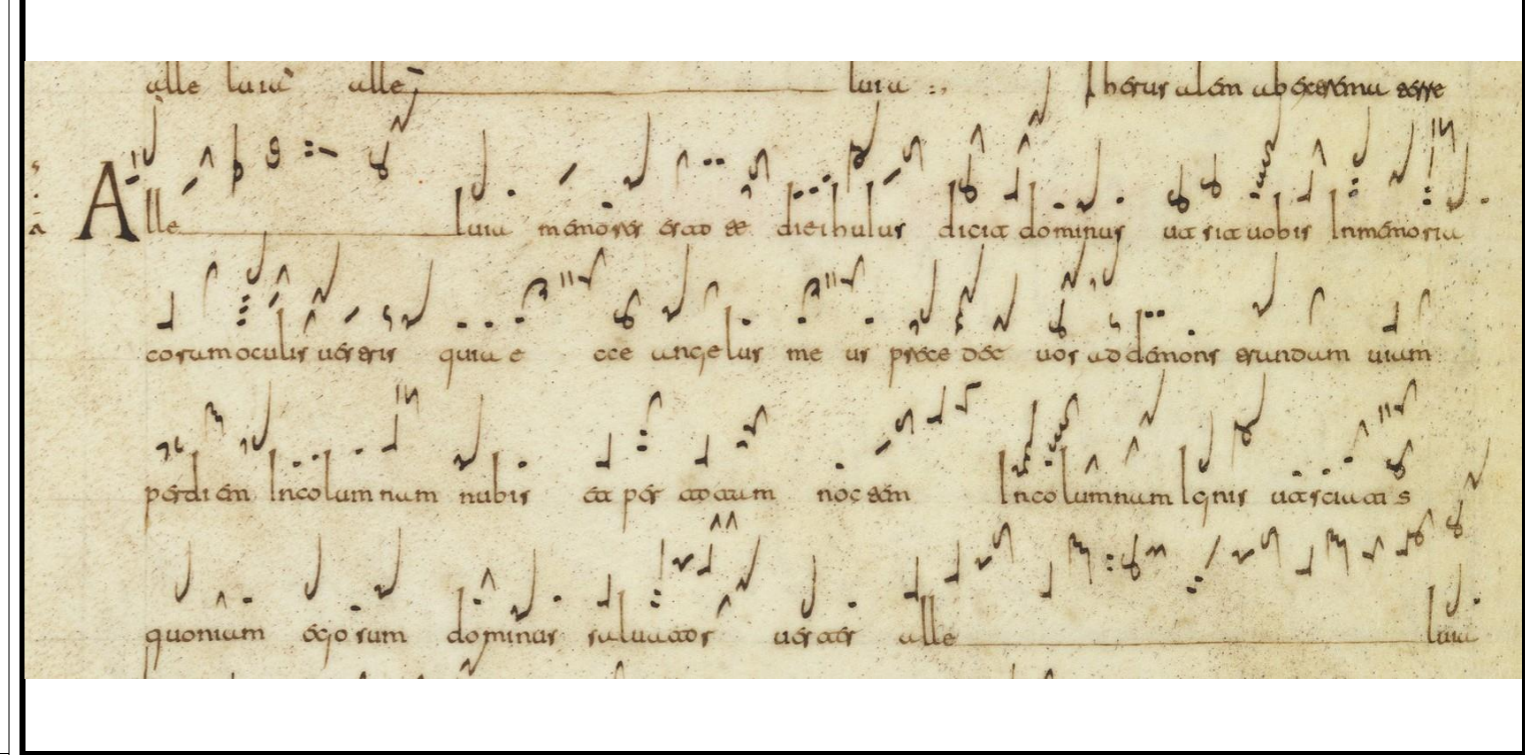 alle luia alle luia Iherusalem
Alle luia memores estote diei huius dicit dominus ut sit uobis In memoria
coram oculis uestris quia e cce angelus me us precedet uos ad demonstrandum uiam
per diem In columnam nubis et per totam noctem In columnam Ignis ut sciatis
quoniam ego sum dominus saluator uester alle luia